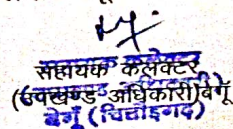 सहायक कलेक्टर
(उपखण्ड अधिकारी) बेगूँ
बेगूँ (चित्तौड़गढ़)